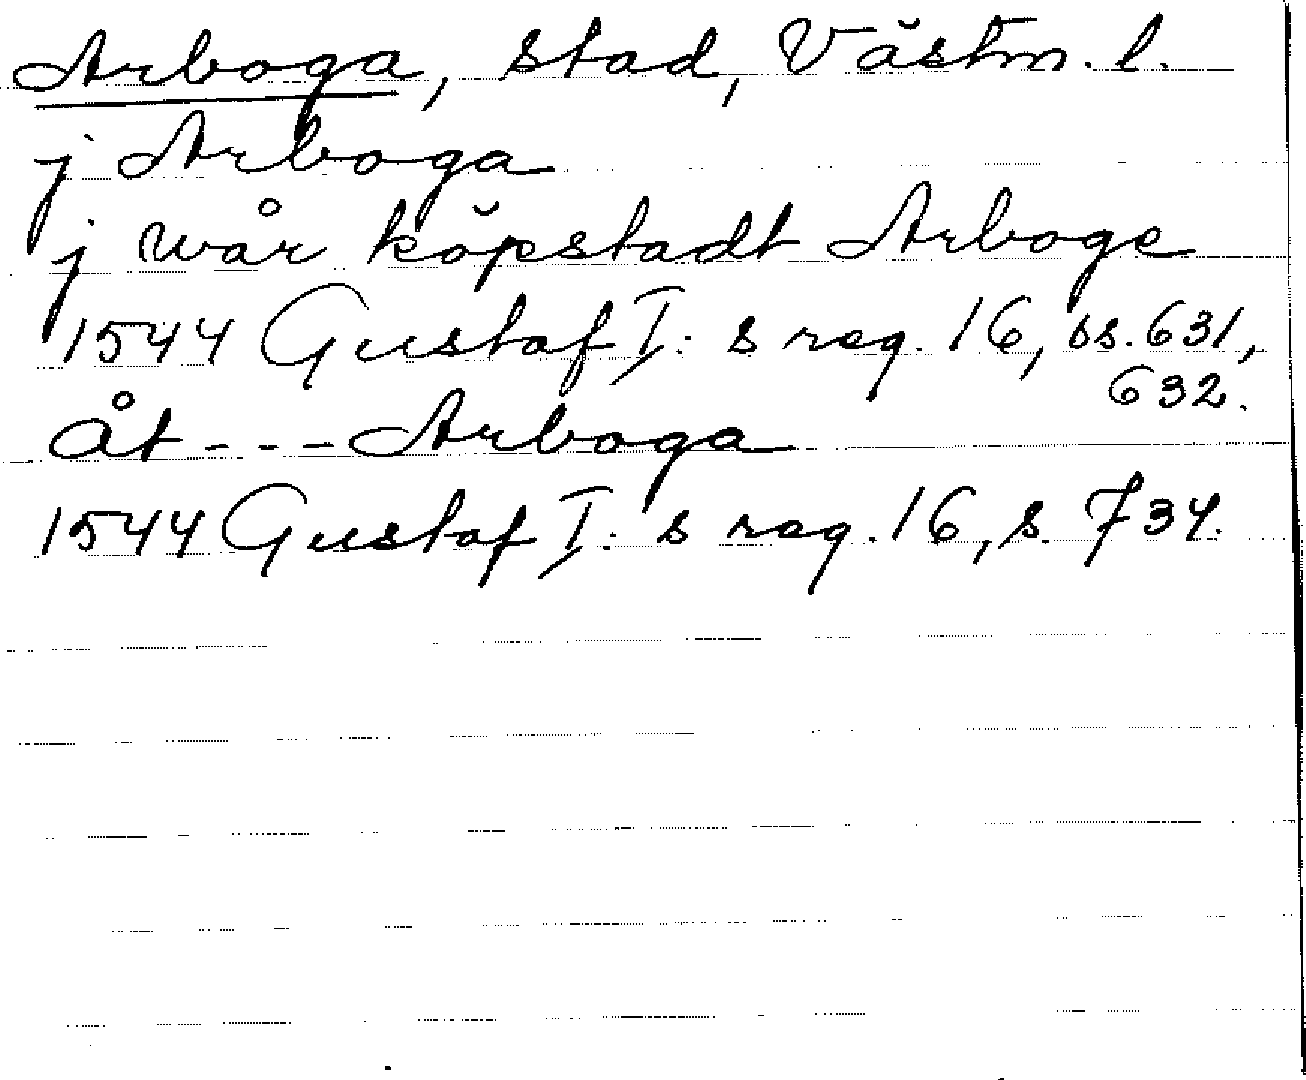 Arboga, stad, Västm. l.
j Arboga
j wår köpstadt Arboge
1544 Gustaf I: s reg. 16, ss. 631,
632.
Åt - - - Arboga
1544 Gustaf I: s reg. 16, s. 734.